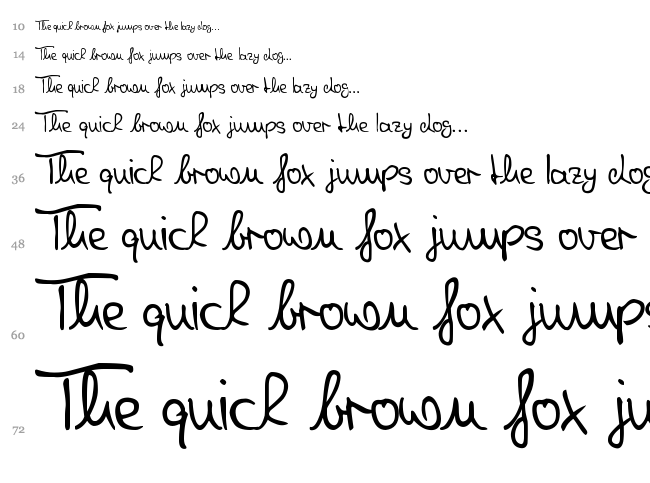 10 The quick brown fox jumps over the lazy dog...
14 The quick brown fox jumps over the lazy dog...
18 The quick brown fox jumps over the lazy dog...
24 The quick brown fox jumps over the lazy dog...
36 The quick brown fox jumps over the lazy dog
48 The quick brown fox jumps over
60 The quick brown fox jumps
72 The quick brown fox ju